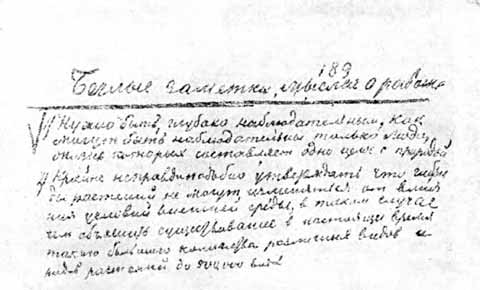 183
Беглые заметки, мысли о работе
1) Нужно быть глубоко наблюдательным, как
могут быть наблюдательны только люди,
жизнь которых составляет одно целое с природой
2) Крайне неправдоподобно утверждать что
растений не могут изменяться от влия
ния условий внешней среды, в таком случае
чем объяснить существование в настоящее время
такого большого количества различных видов и
растений до 300000